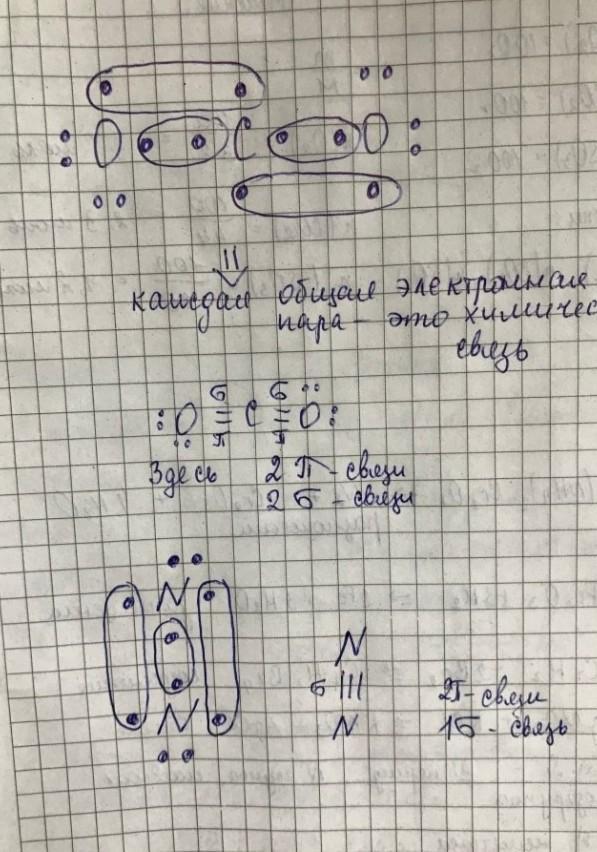 O C O
каждая общая электронная
пара - это химичес
связь
σ σ
:O = C = O:
π π
Здесь 2 π - связи
2 σ - связи
N
N
N
σ |||
N
2π - связи
1σ - связь